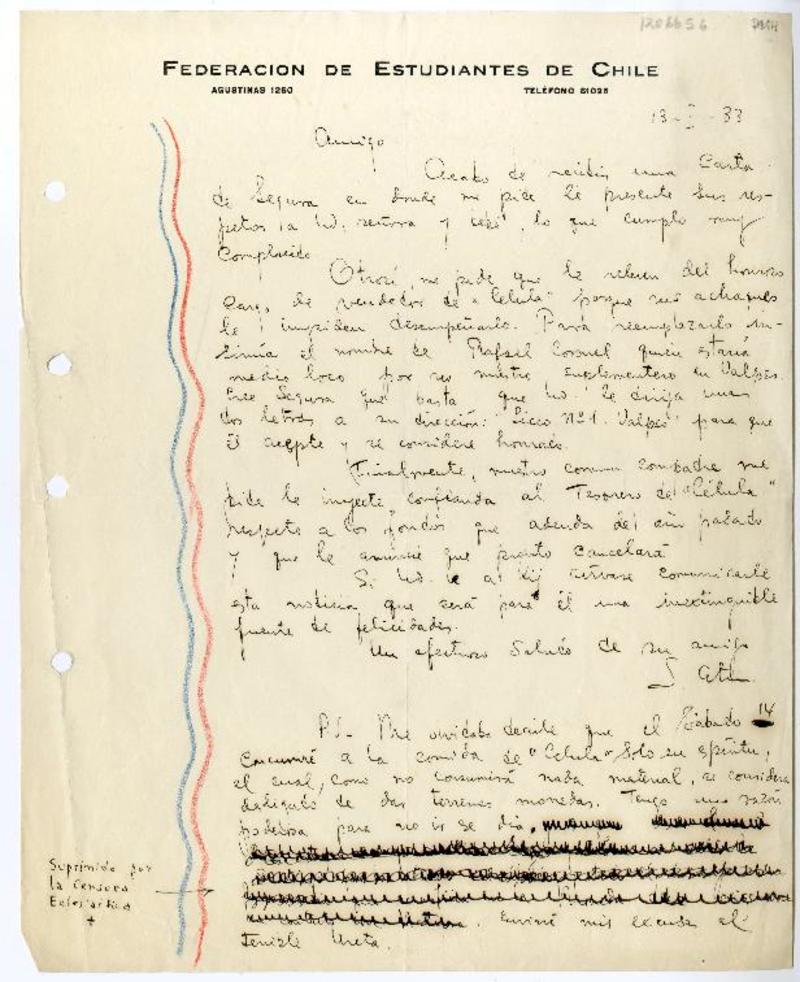 1206656
FEDERACION DE ESTUDIANTES DE CHILE
AGUSTINAS 1250 TELÉFONO 81025
13-I-33
Amigo
Acabo de recibir una Carta
de Segura en donde me pide le presente sus res-
petos a Ud. señora y bebé, lo que cumplo muy
Complacido
Otrosí, me pide que le releven del honroso
Cargo de vendedor de "Célula" porque sus achaques
le impiden desempeñarlo. Para reemplazarlo in-
sinúa el nombre de Rafael Coronel quien estaría
medio loco por ser nuestro suplementero en Valpso.
Cree Segura que basta que Ud. le dirija unas
dos letras a su dirección: "Liceo Nº1. Valpso" para que
él acepte y se considere honrado.
Finalmente, nuestro común compadre me
pide le inyecte confianza al Tesorero de "Célula"
respecto a los fondos que adeuda del año pasado
y que le anuncie que pronto cancelará
Si Ud. ve al sírvase comunicarle
esta noticia que será para él una inextinguible
fuente de felicidades.
Un afectuoso Saludo de su amigo
P.S.- Me olvidaba decirle que el Sábado 14
Concurriré a la comida de "Célula" Sólo en espíritu,
el cual, como no consumirá nada material, se considera
desligado de dar terrenas monedas. Tengo una razón
poderosa para no ir ese día,
. Enviré mis excusas al
Temible Ureta.
Suprimido por
la Censura
Eclesiástica
+